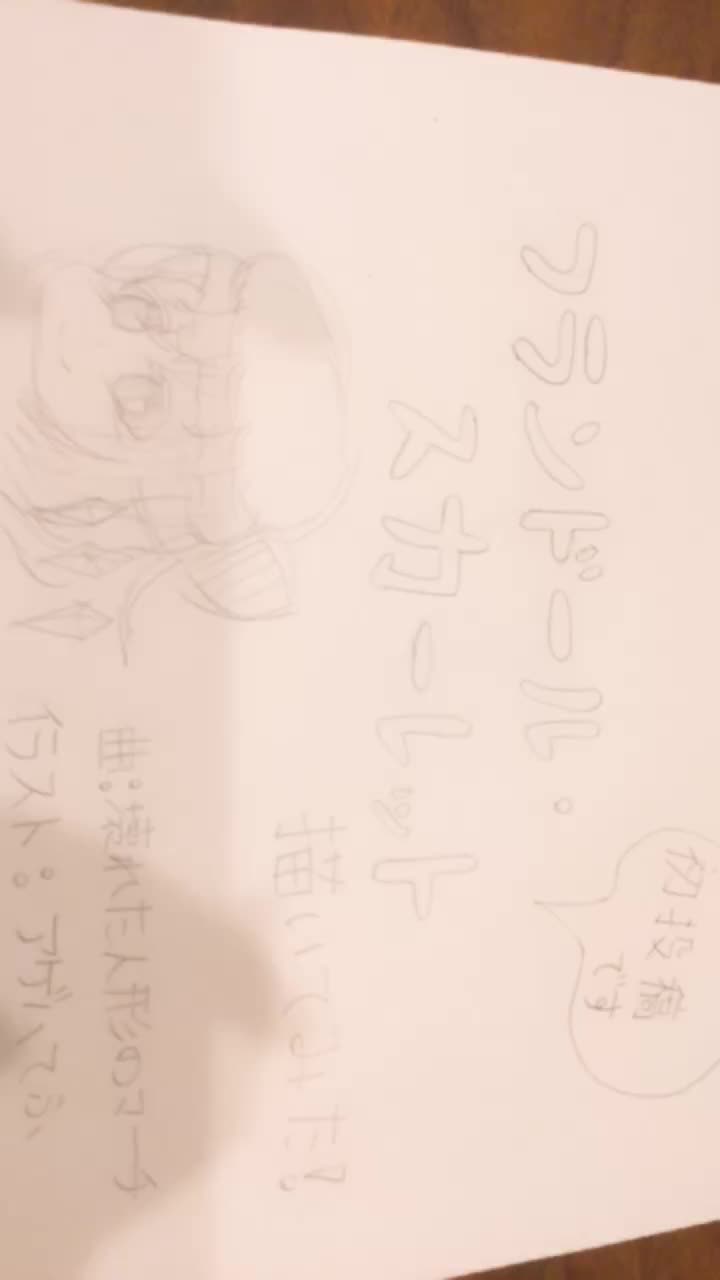 初投稿
です
フランドール・
スカーレット
描いてみた!
曲:壊れた人形のマーチ
イラスト:アゲハてふ